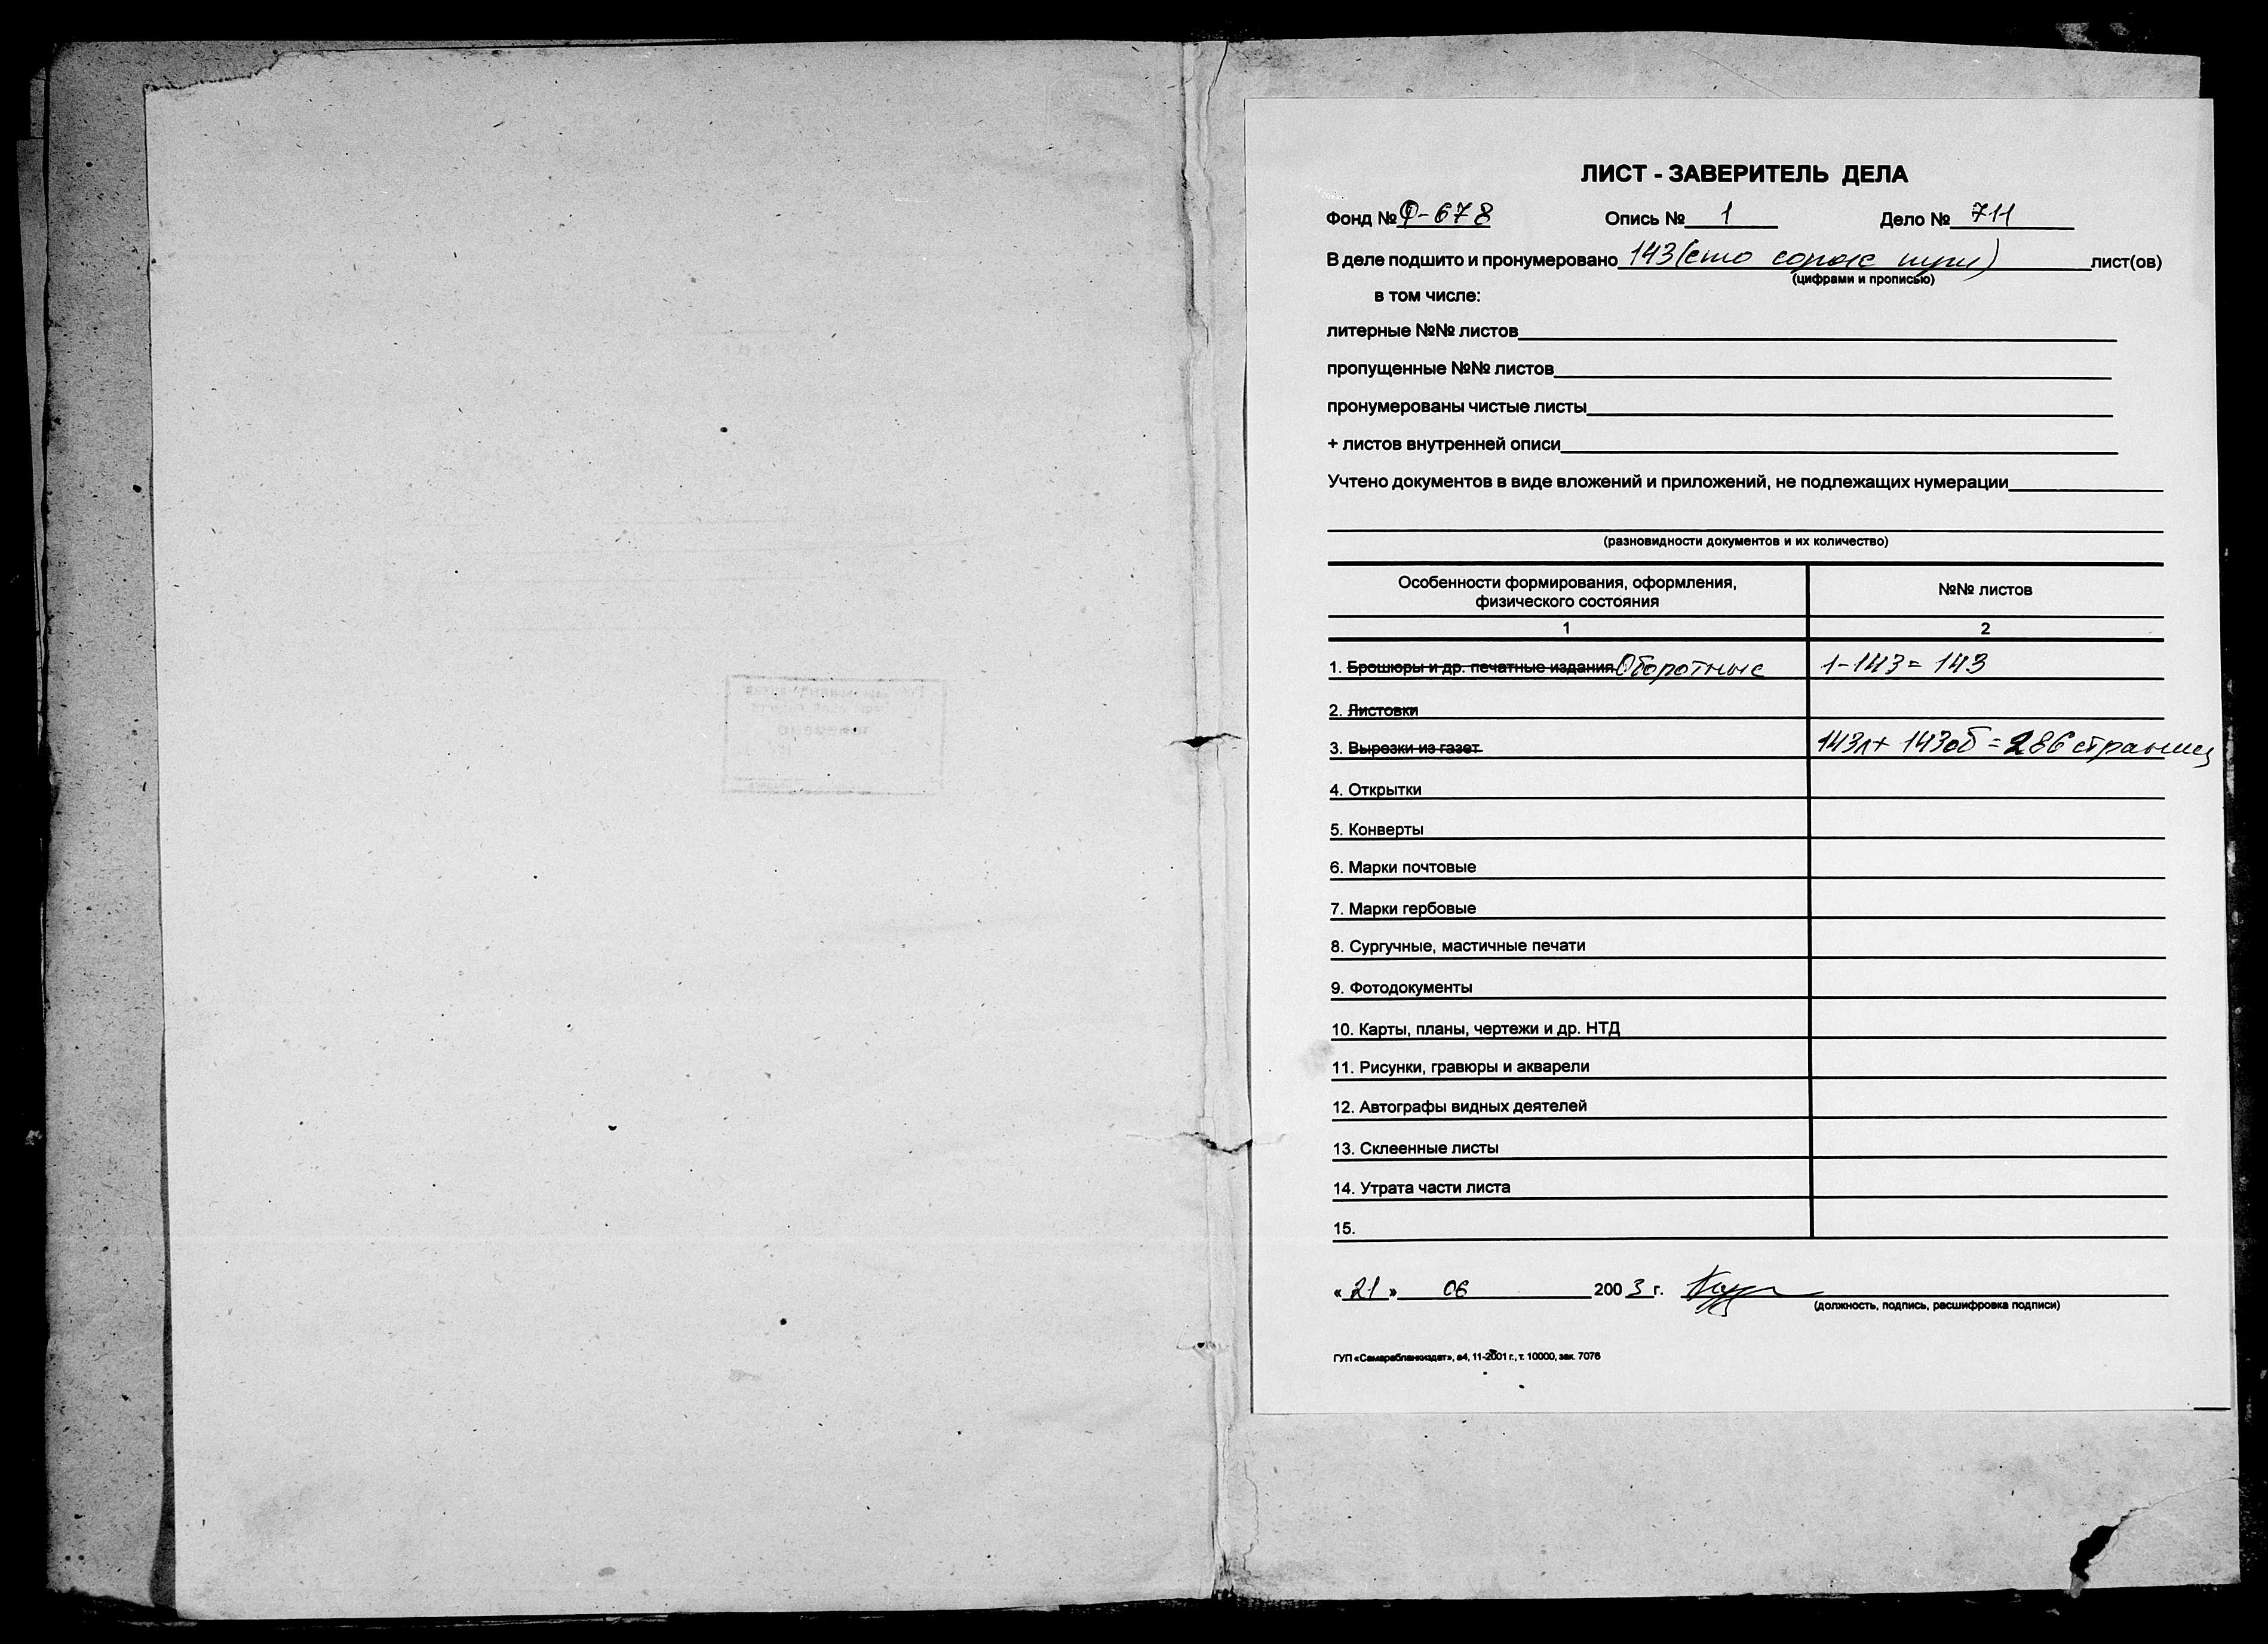 ЛИСТ - ЗАВЕРИТЕЛЬ ДЕЛА
Фонд № Ф-678 Опись № 1 Дело № 711
В деле подшито и пронумеровано 143 (сто сорок три) лист(ов)
(цифрами и прописью)
в том числе:
литерные №№ листов
пропущенные №№ листов
пронумерованы чистые листы
+ листов внутренней описи
Учтено документов в виде вложений и приложений, не подлежащих нумерации
(разновидности документов и их количество)
Особенности формирования, оформления, №№ листов
физического состояния
1 2
1. Брошюры и др. печатные издания Оборотные 1-143 = 143
2. Листовки
3. Вырезки из газет 143л + 143об = 286 страниц
4. Открытки
5. Конверты
6. Марки почтовые
7. Марки гербовые
8. Сургучные, мастичные печати
9. Фотодокументы
10. Карты, планы, чертежи и др. НТД
11. Рисунки, гравюры и акварели
12. Автографы видных деятелей
13. Склеенные листы
14. Утрата части листа
15.
«21» 06 2003 г.
(должность, подпись, расшифровка подписи)
ГУП «Самарабланкиздат», а4, 11-2001 г., т. 10000, зак. 7076